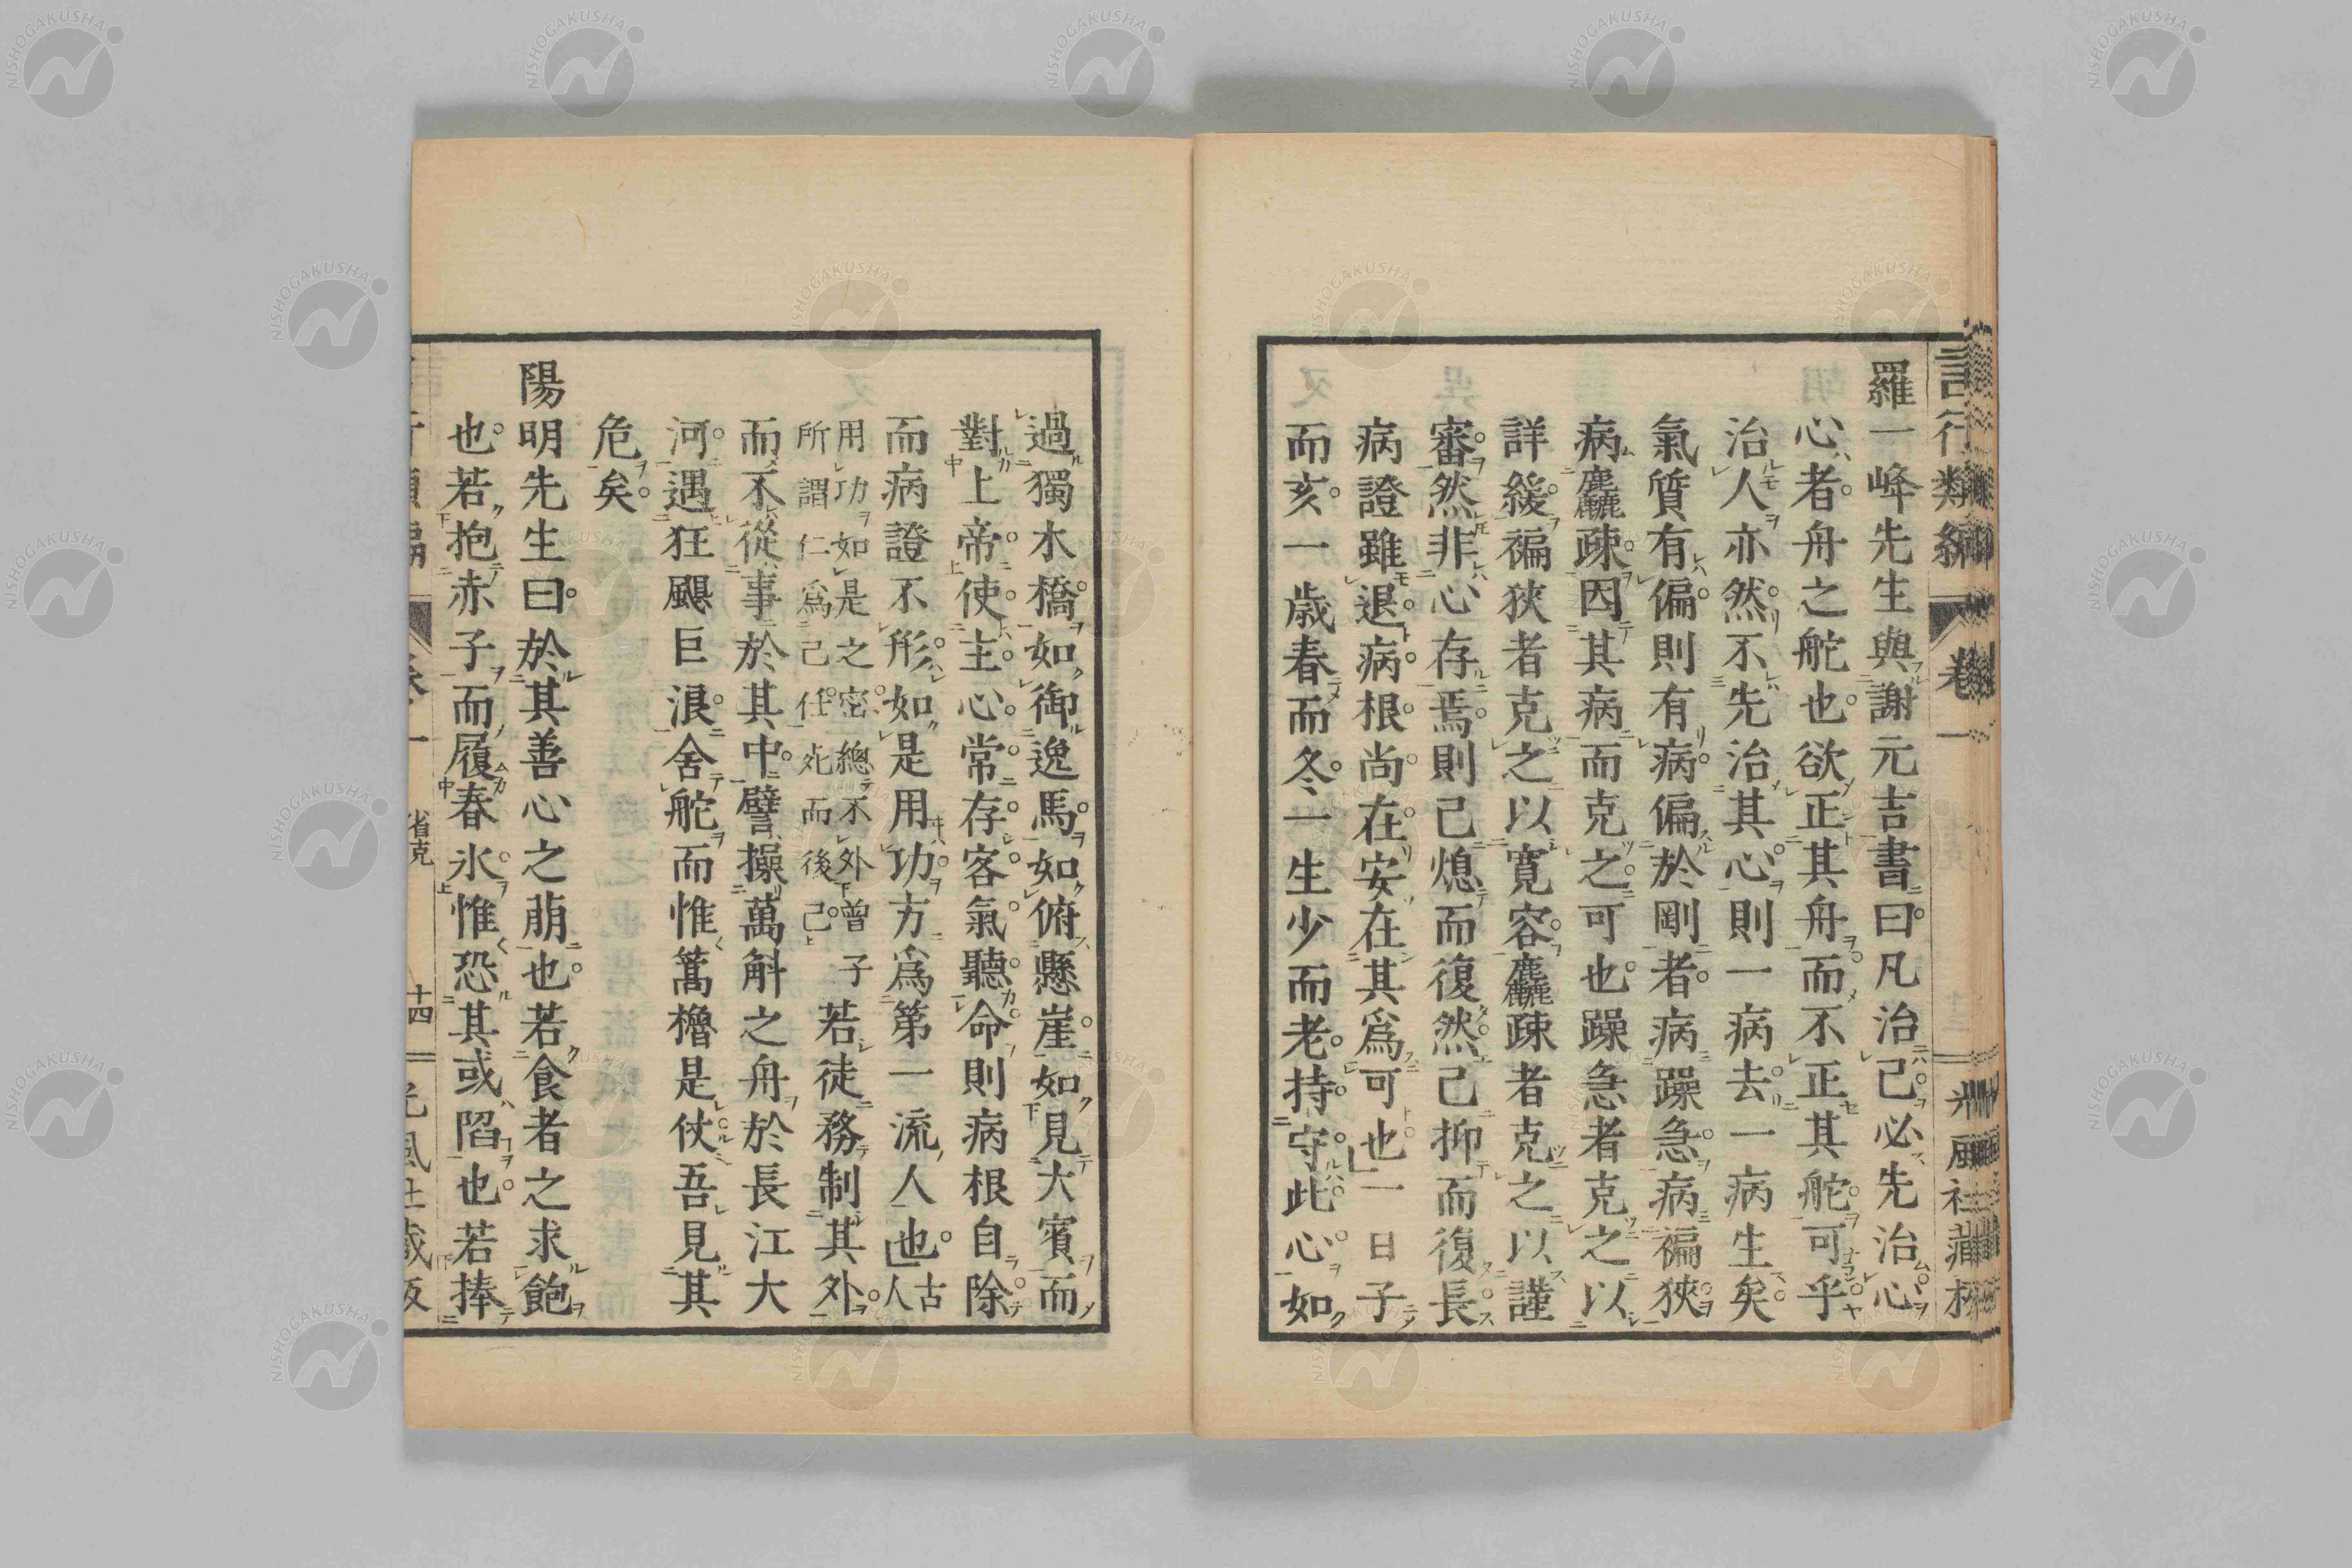 言行類編 卷一 光風社蔵梓
羅一峰先生與謝元吉書曰凡治己必先治心
心者舟之舵也欲正其舟而不正其舵可乎
治人亦然不先治其心則一病去一病生矣
氣質有偏則有病偏於剛者病躁急病褊狹
病麤疎因其病而克之可也躁急者克之以
詳緩褊狹者克之以寛容麤疎者克之以謹
審然非心存焉則己熄而復然己抑而復長
病證雖退病根尚在安在其爲可也一日子
而亥一歲春而冬一生少而老持守此心如
過獨木橋如御逸馬如俯懸崖如見大賓而
對上帝使主心常存客氣聽命則病根自除
而病證不形如是用功方爲第一流人也古人
用功如是之密總不外曾子
所謂仁爲己任死而後己
若徒務制其外
而不從事於其中譬操萬斛之舟於長江大
河遇狂颶巨浪舍舵而惟篙櫓是仗吾見其
危矣
陽明先生曰於其善心之萠也若食者之求飽
也若抱赤子而履春氷惟恐其或陷也若捧
省克 十四
NISHOGAKUSHA